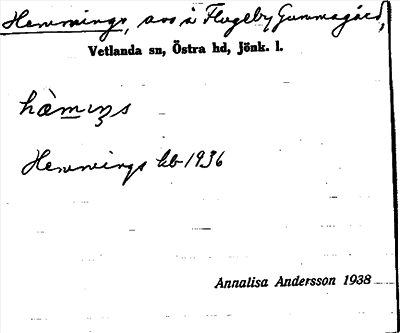 Hemmings, avs i Flugeby Gunnagård,
Vetlanda sn, Östra hd, Jönk. l.
hæ̀mıŋs
Hemmings kb 1936
Annalisa Andersson 1938